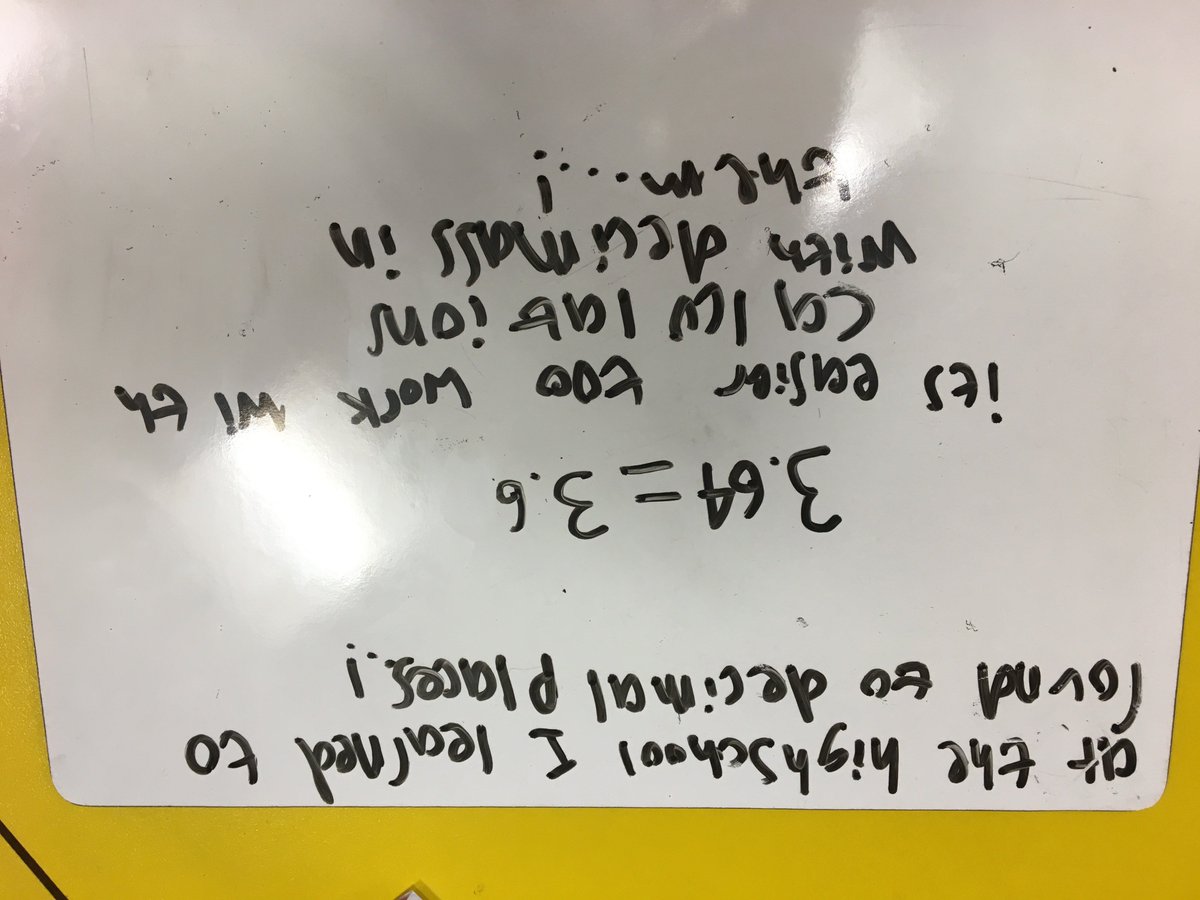 at the highschool I learned to
round to decimal places.!
3.64 = 3.6
its easier too work with
calculations
with decimals in
them....!